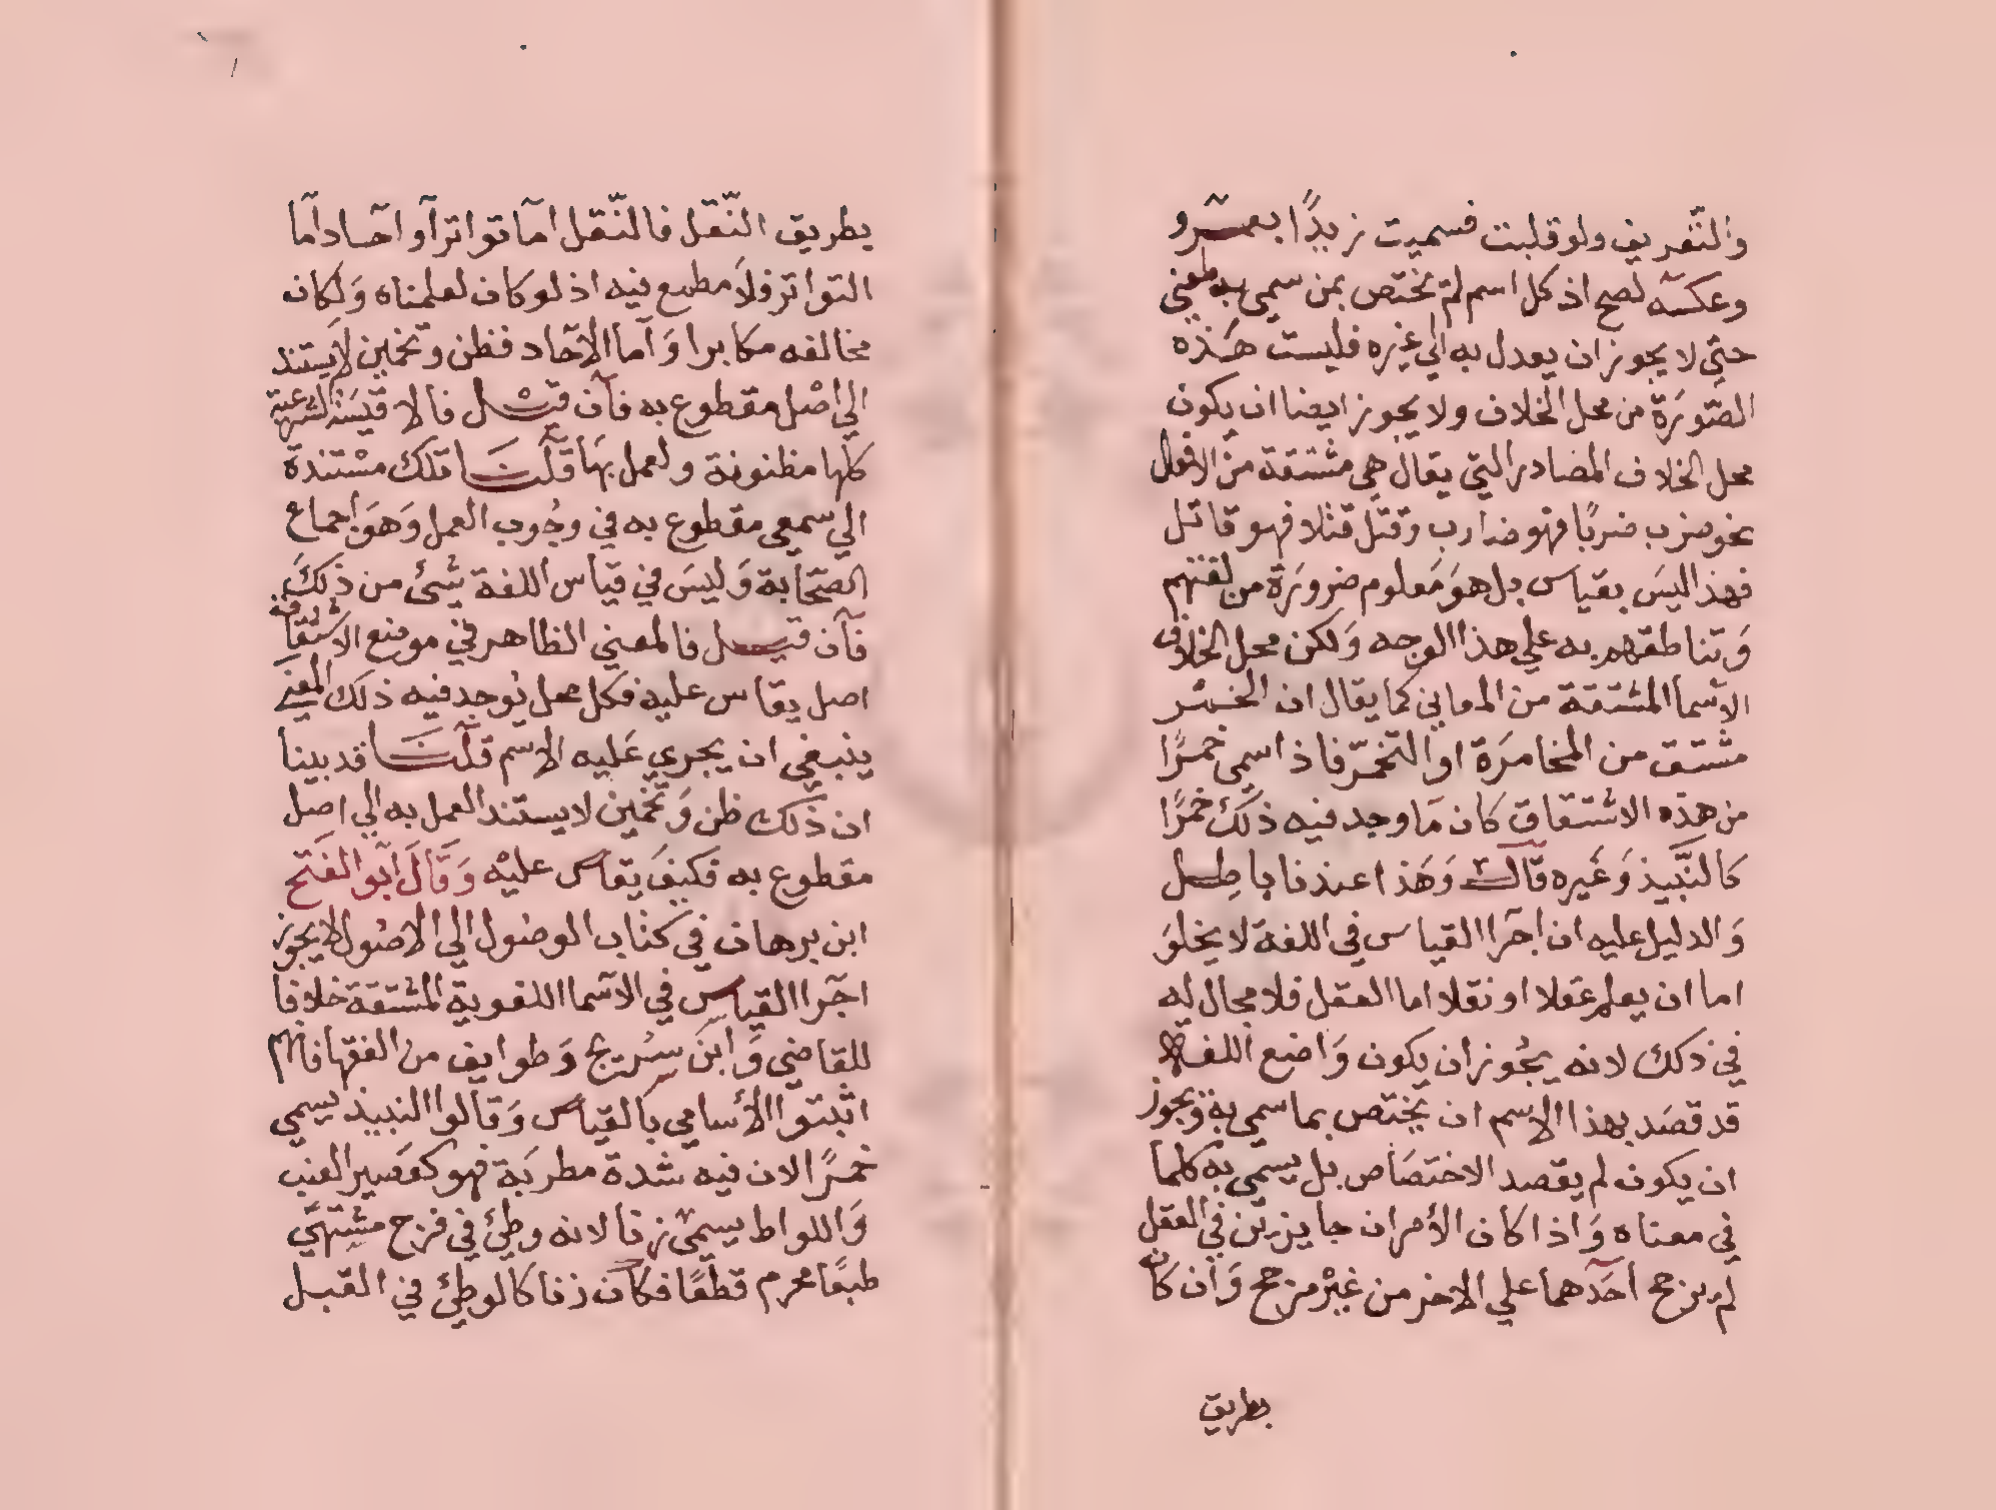 والتعريف ولو قلبت فسميت زيدًا بعمرو
وعكسه لصح اذ كل اسم لم يختص بمن سمي به لمعني
حتي لا يجوز ان يعدل به الي غيره فليست هَذه
الصّورَة من محل الخلاف ولا يجوز ايضا ان يكون
محل الخلاف المصادر التي يقال هي مشتقة من الافعال
نحو ضرب ضربًا فهو ضارب وقتل قتلا فهو قاتل
فهذا ليسَ بقياس بل هوَ مَعلوم ضرورَة من لغتهم
وَتناطقهم به علي هذا الوجه وَلكن محل الخلاف
الاسما المشتقة من المعاني كما يقال ان الخمر
مشتق من المخامرَة او التخمّر فاذا سمي خمرًا
من هذه الاشتقاق كان مَا وجد فيه ذلكَ خمرًا
كالنَّبيذ وَغَيره قال وَهَذا عندنا باطِل
وَالدليل عليه ان اجرا القياس في اللغة لا يخلوَ
اما ان يعلم عَقلا او نقلا اما العقل فلا مجال له
في ذلك لانه يجُوز ان يكون وَاضع اللغة
قد قصَد بهذا الاسم ان يختص بما سمي به ويجوز
ان يكون لم يقصد الاختصَاص بل يسمي به كلما
في معناه وَاذا كان الأمران جايزين في العقل
لم يرجح احَدهما علي الاخر من غيْر مرجح وَان كان
بطريق
بطريق النّقل فالنّقل امّا تواترًا او احَاد امّا
التواتر فلاَ مطمع فيه اذ لو كان لعلمناه وَلكان
مخالفه مكابرا وَاما الاحَاد فظن وتخمين لا يستند
الي اصْل مقطوع به فان قيْل فالاقيسَة الشرعية
كلها مظنونة ولعمل بهَا قلنَا تلك مسْتندة
الي سمعي مقطوع به في وجُوب العمل وَهوَ اجماع
الصّحَابة وَليسَ في قيَاس اللغة شئ من ذلكَ
فان قيل فالمعني الظاهر في موضع الاشتقاق
اصل يقاس عليه فكل محل يُوجد فيه ذلك المعني
ينبغي ان يجري عَليه الاسم قلنَا قد بينا
ان ذلك ظن وَتخمين لا يستند العمل به الي اصل
مقطوع به فكيفَ يقاس عليْه وَقَالَ ابو الفَتح
ابن برهان في كتاب الوصُول الي الاصُول لا يجوز
اجرا القياس في الاسما اللغوية المشتقة خلافا
للقاضي وَابن سُريج وَطوايف من الفقها فانهم
اثبتوا الأسامي بالقياس وَقالوا النبيذ يسمي
خمرًا لان فيه شدة مطربَة فهو كعَصير العنب
وَاللواط يسمّي زنا لانه وطئ في فرج مشتهَي
طبعًا محرم قطعًا فكان زنا كالوطئ في القبل